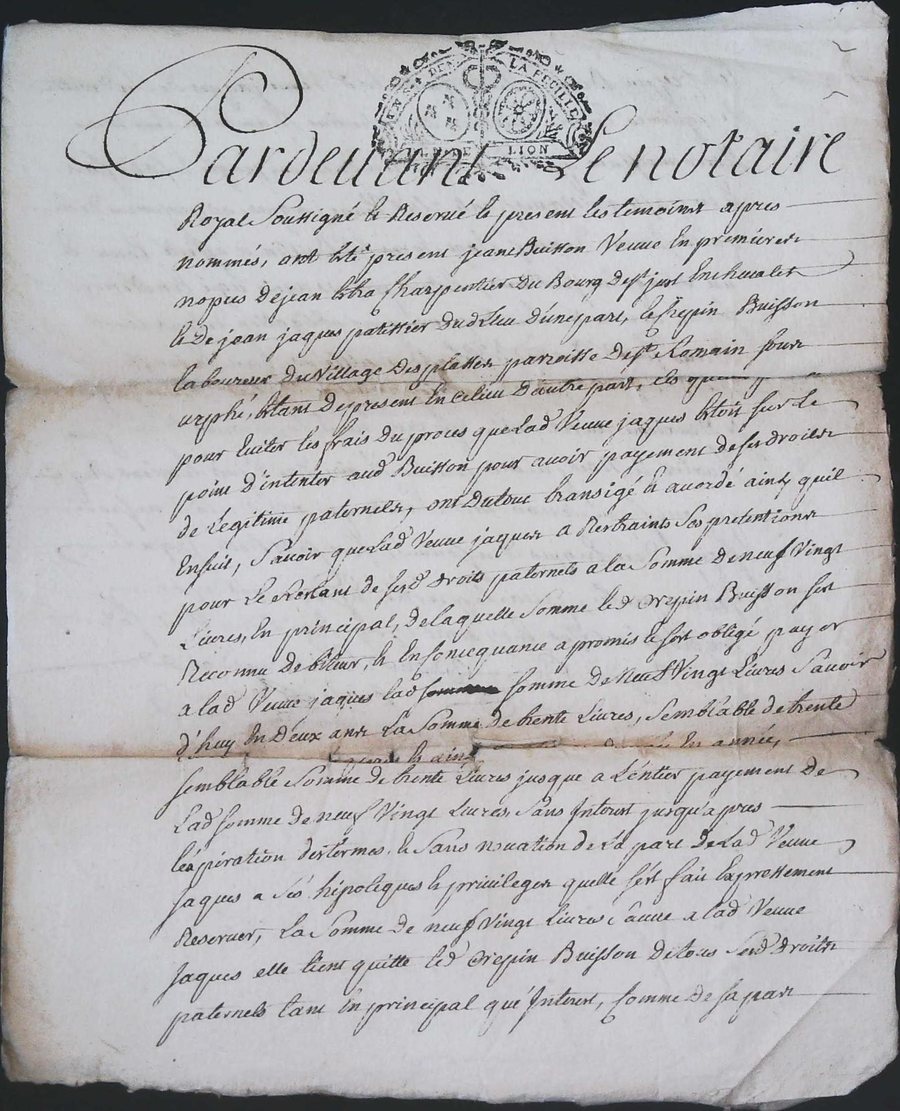 DEN LA FEUILLE
LION
Pardevant Le notaire
Royal Soussigné & Reservé le present les temoins apres
nommés, ont été present jeane Buisson Veuve En premieres
nopces De jean Charpentier Du Bourg De st just En chevalet
& De jean jaques patissier Dud Lieu D'une part, & Crepin Buisson
laboureur Du Village Des plasses parroisse De st Romain sous
urphé, Etant De present En ce lieu D'autre part, Les
pour Eviter les frais Du proces que Lad Veuve jaques Etoit sur Le
point D'intenter aud Buisson pour avoir payement de ses droits
de Legitime paternels, ont Du tout transigé & acordé ainsy quil
Ensuit, Savoir que Lad Veuve jaques a Restraints Ses pretentions
pour Le Restant de sesd Droits paternels a la Somme De neuf Vingt
Livres, En principal, De laquelle Somme led Crepin Buisson sest
Reconnu Debiteur, & En Concequance a promis & sest obligé payer
a lad Veuve jaques lad somme De neuf Vingt Livres Savoir
d'huy En Deux ans La Somme De trente Livres, Semblable De trente
En année,
semblable Somme De trente Livres jusque a L'entier payement De
Lad Somme De neuf Vingt Livres Sans Interest jusqu'apres
L'expiration Des termes, & Sans novation De La part De Lad Veuve
jaques a Ses hipoteques & privileges quelle sest fait Expressement
Reserver, La Somme De neuf Vingt Livres Sauve a lad Veuve
Jaques elle tient quitte led Crepin Buisson De tous Sesd Droits
paternels tant En principal qu'Interest, Comme De sa part